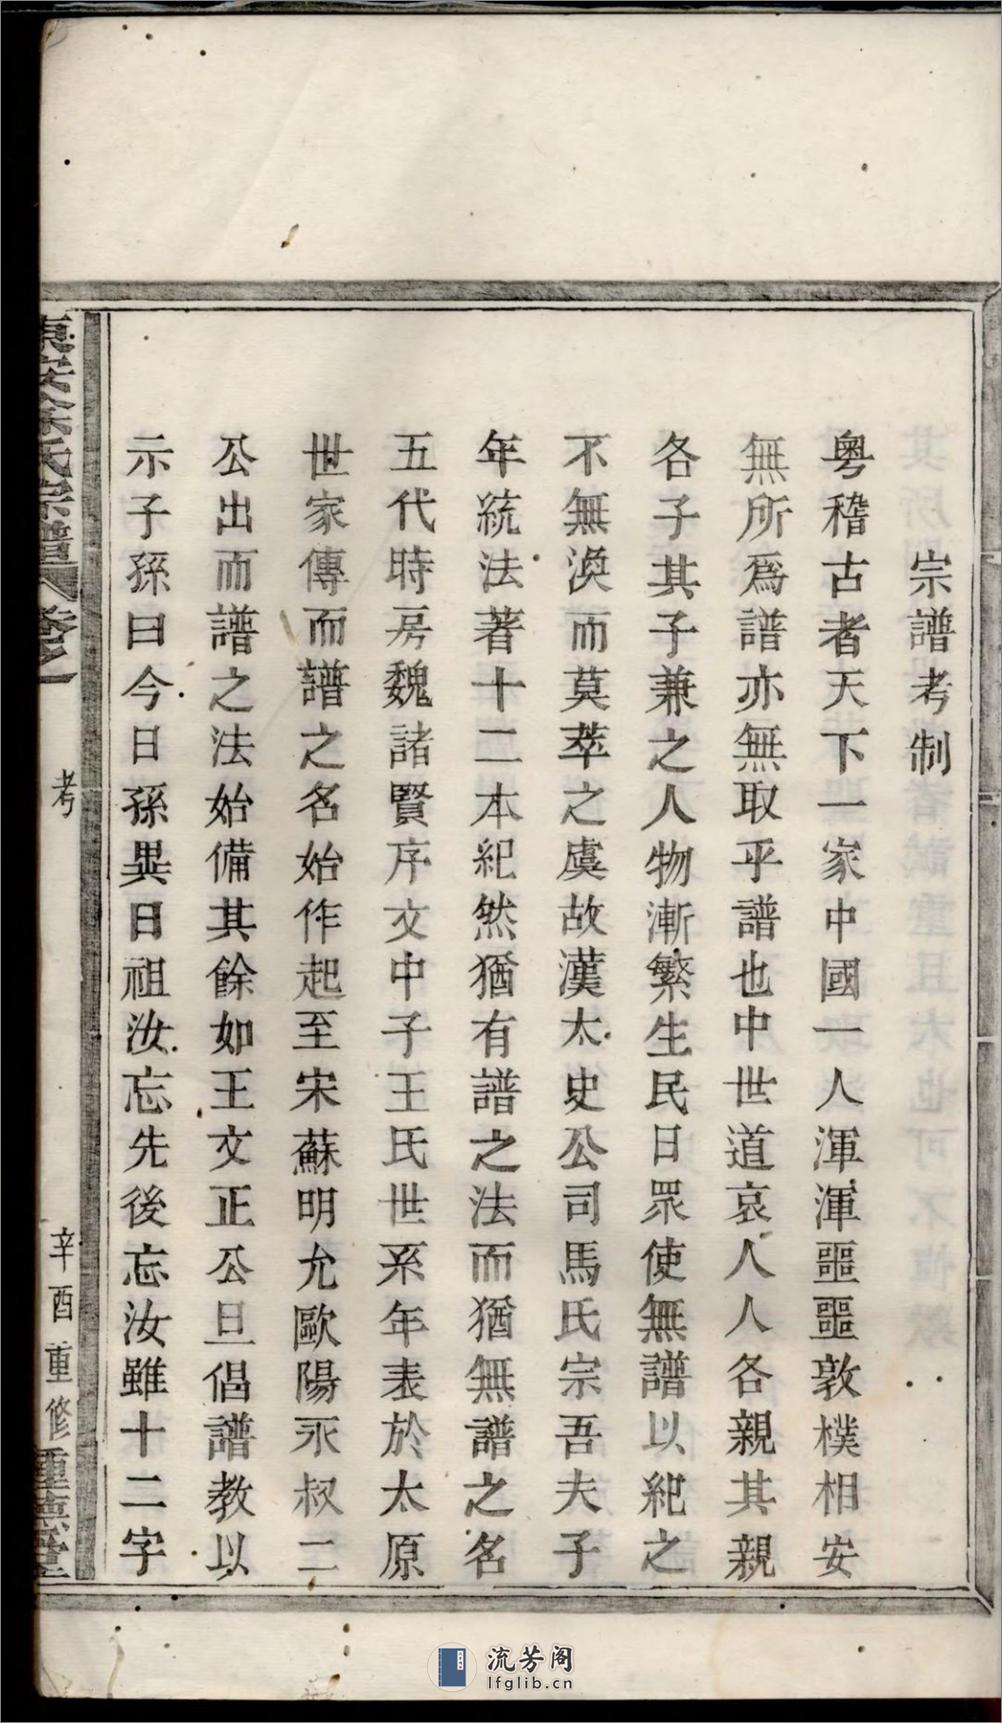 宗譜考制
粵稽古者天下一家中國一人渾渾噩噩敦樸相安
無所爲譜亦無取乎譜也中世道哀人人各親其親
各子其子兼之人物漸繁生民日眾使無譜以紀之
不無渙而莫萃之虞故漢太史公司馬氏宗吾夫子
年統法著十二本紀然猶有譜之法而猶無譜之名
五代時房魏諸賢序文中子王氏世系年表於太原
世家傳而譜之名始作起至宋蘇明允歐陽永叔二
公出而譜之法始備其餘如王文正公旦倡譜教以
示子孫曰今日孫異日祖汝忘先後忘汝雖十二字
東安徐氏宗譜 卷之一
考
辛酉重修
流芳阁
lfglib.cn